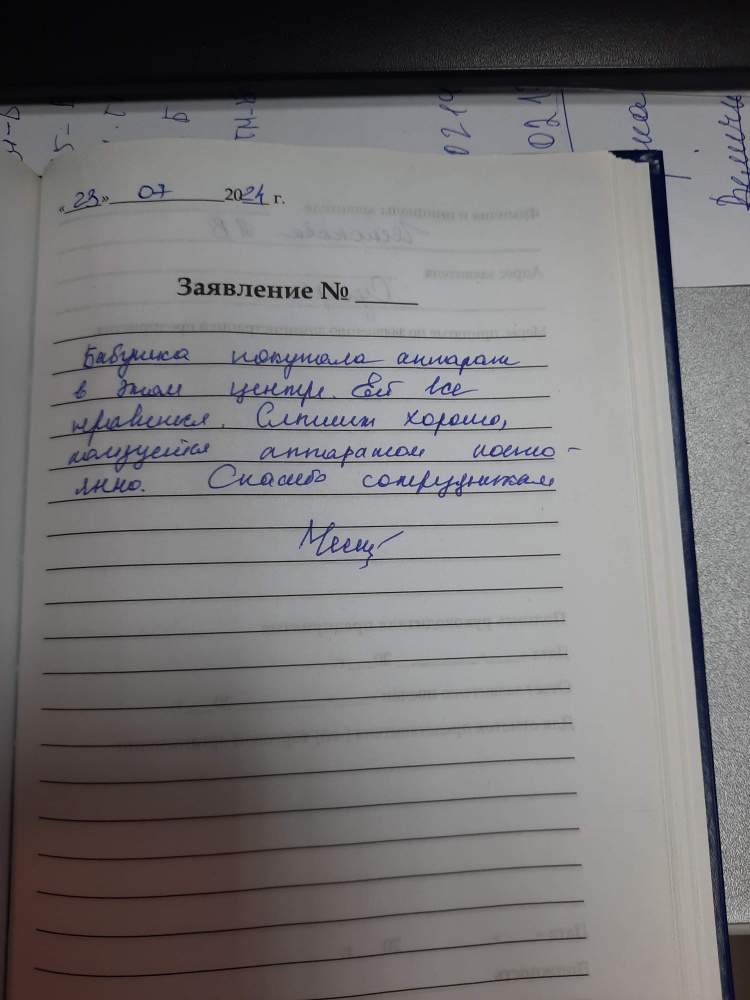 «23» 07 2024 г.
Заявление №
Бабушка покупала аппарат
в этом центре. Ей все
нравится. Слышит хорошо,
пользуется аппаратом посто-
янно. Спасибо сотрудникам
0214
021